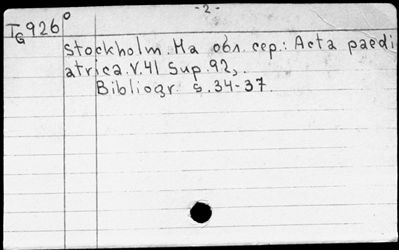 - 2 -
TG 926°
Stockholm. На обл. сер.: Acta paedi
atrica. V. 41 Sup. 92,.
Bibliogr. s. 34-37.